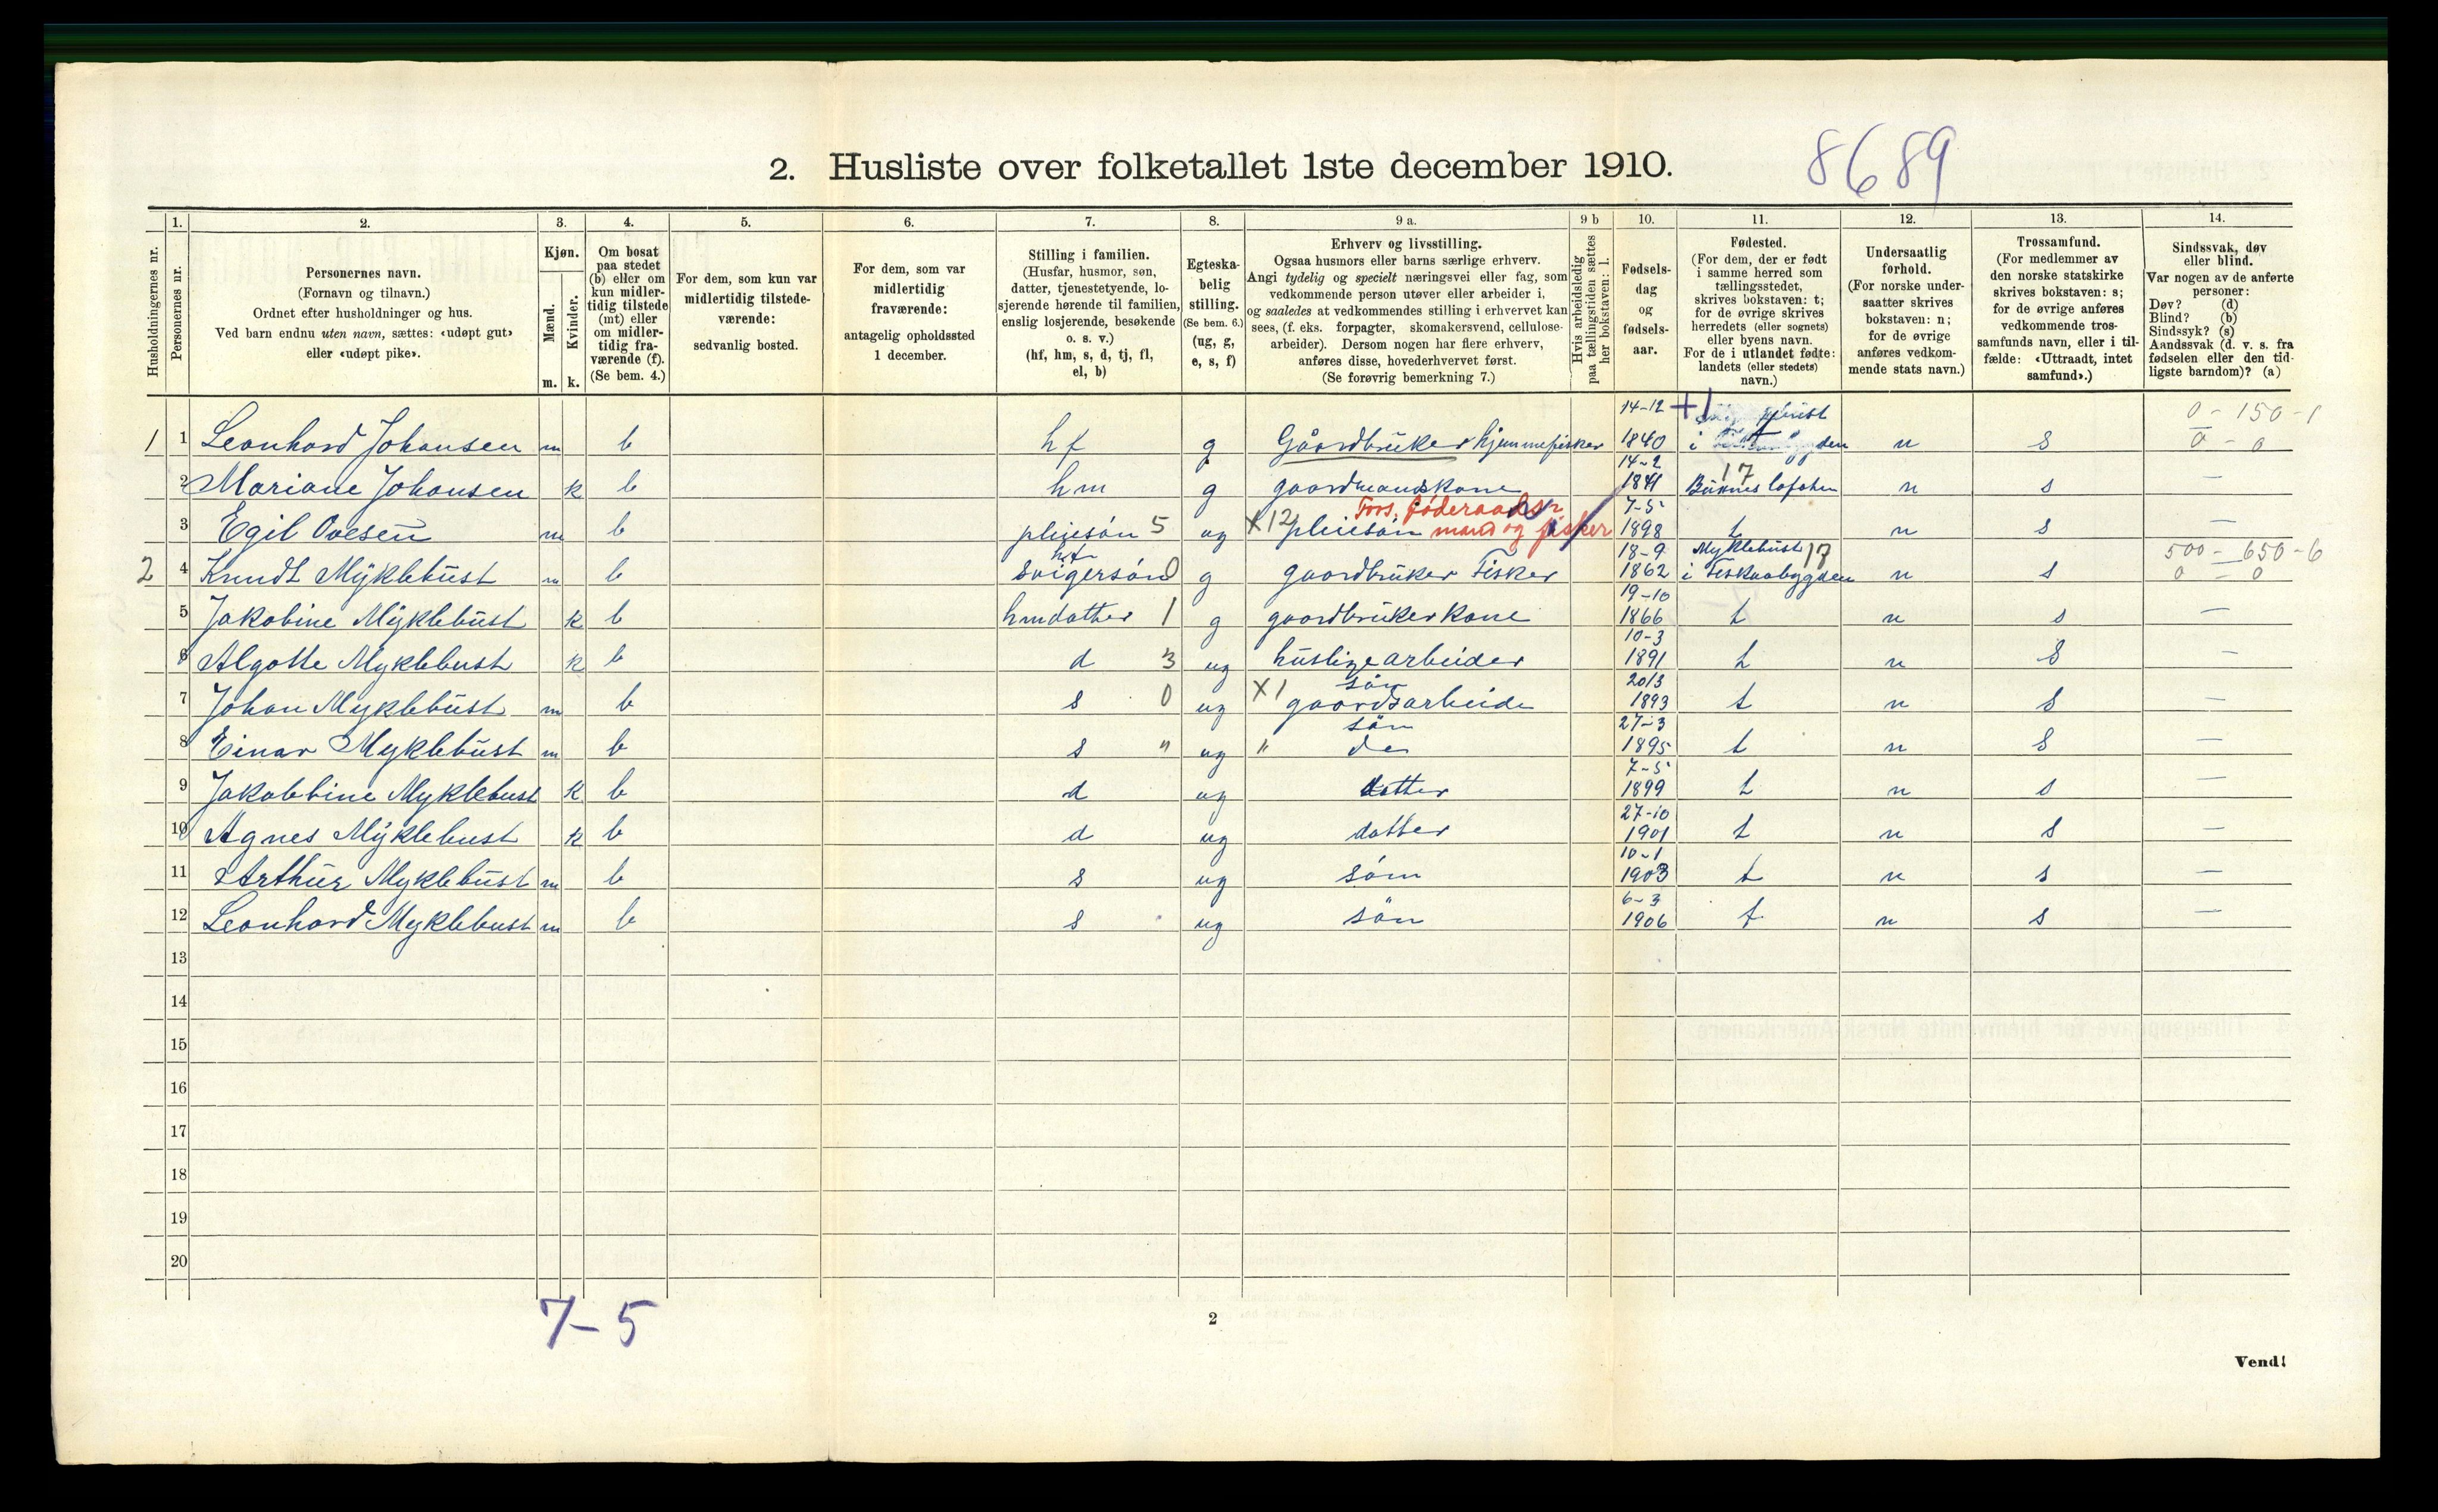 2. Husliste over folketallet 1ste december 1910.
8689
Husholdningernes nr.
1.
Personernes nr.
2.
Personernes navn.
(Fornavn og tilnavn.)
Ordnet efter husholdninger og hus.
Ved barn endnu uten navn, sættes: «udøpt gut»
eller «udøpt pike».
3.
Kjøn.
Mænd.
Kvinder.
m. k.
4.
Om bosat
paa stedet
(b) eller om
kun midler-
tidig tilstede
(mt) eller
om midler-
tidig fra-
værende (f).
(Se bem. 4.)
5.
For dem, som kun var
midlertidig tilstede-
værende:
sedvanlig bosted.
6.
For dem, som var
midlertidig
fraværende:
antagelig opholdssted
1 december.
7.
Stilling i familien.
(Husfar, husmor, søn,
datter, tjenestetyende, lo-
sjerende hørende til familien,
enslig losjerende, besøkende
o. s. v.)
(hf, hm, s, d, tj, fl,
el, b)
8.
Egteska-
belig
stilling.
(Se bem. 6.)
(ug, g,
e, s, f)
9 a.
Erhverv og livsstilling.
Ogsaa husmors eller barns særlige erhverv.
Angi tydelig og specielt næringsvei eller fag, som
vedkommende person utøver eller arbeider i,
og saaledes at vedkommendes stilling i erhvervet kan
sees, (f. eks. forpagter, skomakersvend, cellulose-
arbeider). Dersom nogen har flere erhverv,
anføres disse, hovederhvervet først.
(Se forøvrig bemerkning 7.)
9 b
Hvis arbeidsledig
paa tællingstiden sættes
her bokstaven: l.
10.
Fødsels-
dag
og
fødsels-
aar.
11.
Fødested.
(For dem, der er født
i samme herred som
tællingsstedet,
skrives bokstaven: t;
for de øvrige skrives
herredets (eller sognets)
eller byens navn.
For de i utlandet fødte:
landets (eller stedets)
navn.)
12.
Undersaatlig
forhold.
(For norske under-
saatter skrives
bokstaven: n;
for de øvrige
anføres vedkom-
mende stats navn.)
13.
Trossamfund.
(For medlemmer av
den norske statskirke
skrives bokstaven: s;
for de øvrige anføres
vedkommende tros-
samfunds navn, eller i til-
fælde: «Uttraadt, intet
samfund».)
14.
Sindssvak, døv
eller blind.
Var nogen av de anførte
personer:
Døv? (d)
Blind? (b)
Sindssyk? (s)
Aandssvak (d. v. s. fra
fødselen eller den tid-
ligste barndom)? (a)
14-12 +1 0 - 150 - 1
1 1 Leonhard Johansen m b hf g Gaardbruker hjemmefisker 1840 i n s 0 - 0
14-2 17
2 Mariane Johansen k b hm g gaardmandskone 1841 Buknes lofoten n s —
Fors. føderaads- 7-5
3 Egil Ovesen m b pleiesön 5 ug X12 pleiesön mand og fisker 1898 t n s —
hf 18-9 Myklebust 17 500 - 650 - 6
2 4 Knudt Myklebust m b Svigersön 0 g gaardbruker Fisker 1862 i Fiskaabygden n s 0 - 0
19-10
5 Jakobine Myklebust k b hmdatter 1 g gaardbrukerkone 1866 t n s —
10-3
6 Algotte Myklebust k b d 3 ug huslige arbeider 1891 t n s —
sön 20/3
7 Johan Myklebust m b s 0 ug X1 gaardsarbeide 1893 t n s —
sön 27-3
8 Einar Myklebust m b s " ug " do 1895 t n s —
7-5
9 Jakobbine Myklebust k b d ug datter 1899 t n s —
27-10
10 Agnes Myklebust k b d ug datter 1901 t n s —
10-1
11 Arthur Myklebust m b s ug sön 1903 t n s —
6-3
12 Leonhard Myklebust m b s ug sön 1906 t n s —
13
14
15
16
17
18
19
20
7-5
2
Vend!